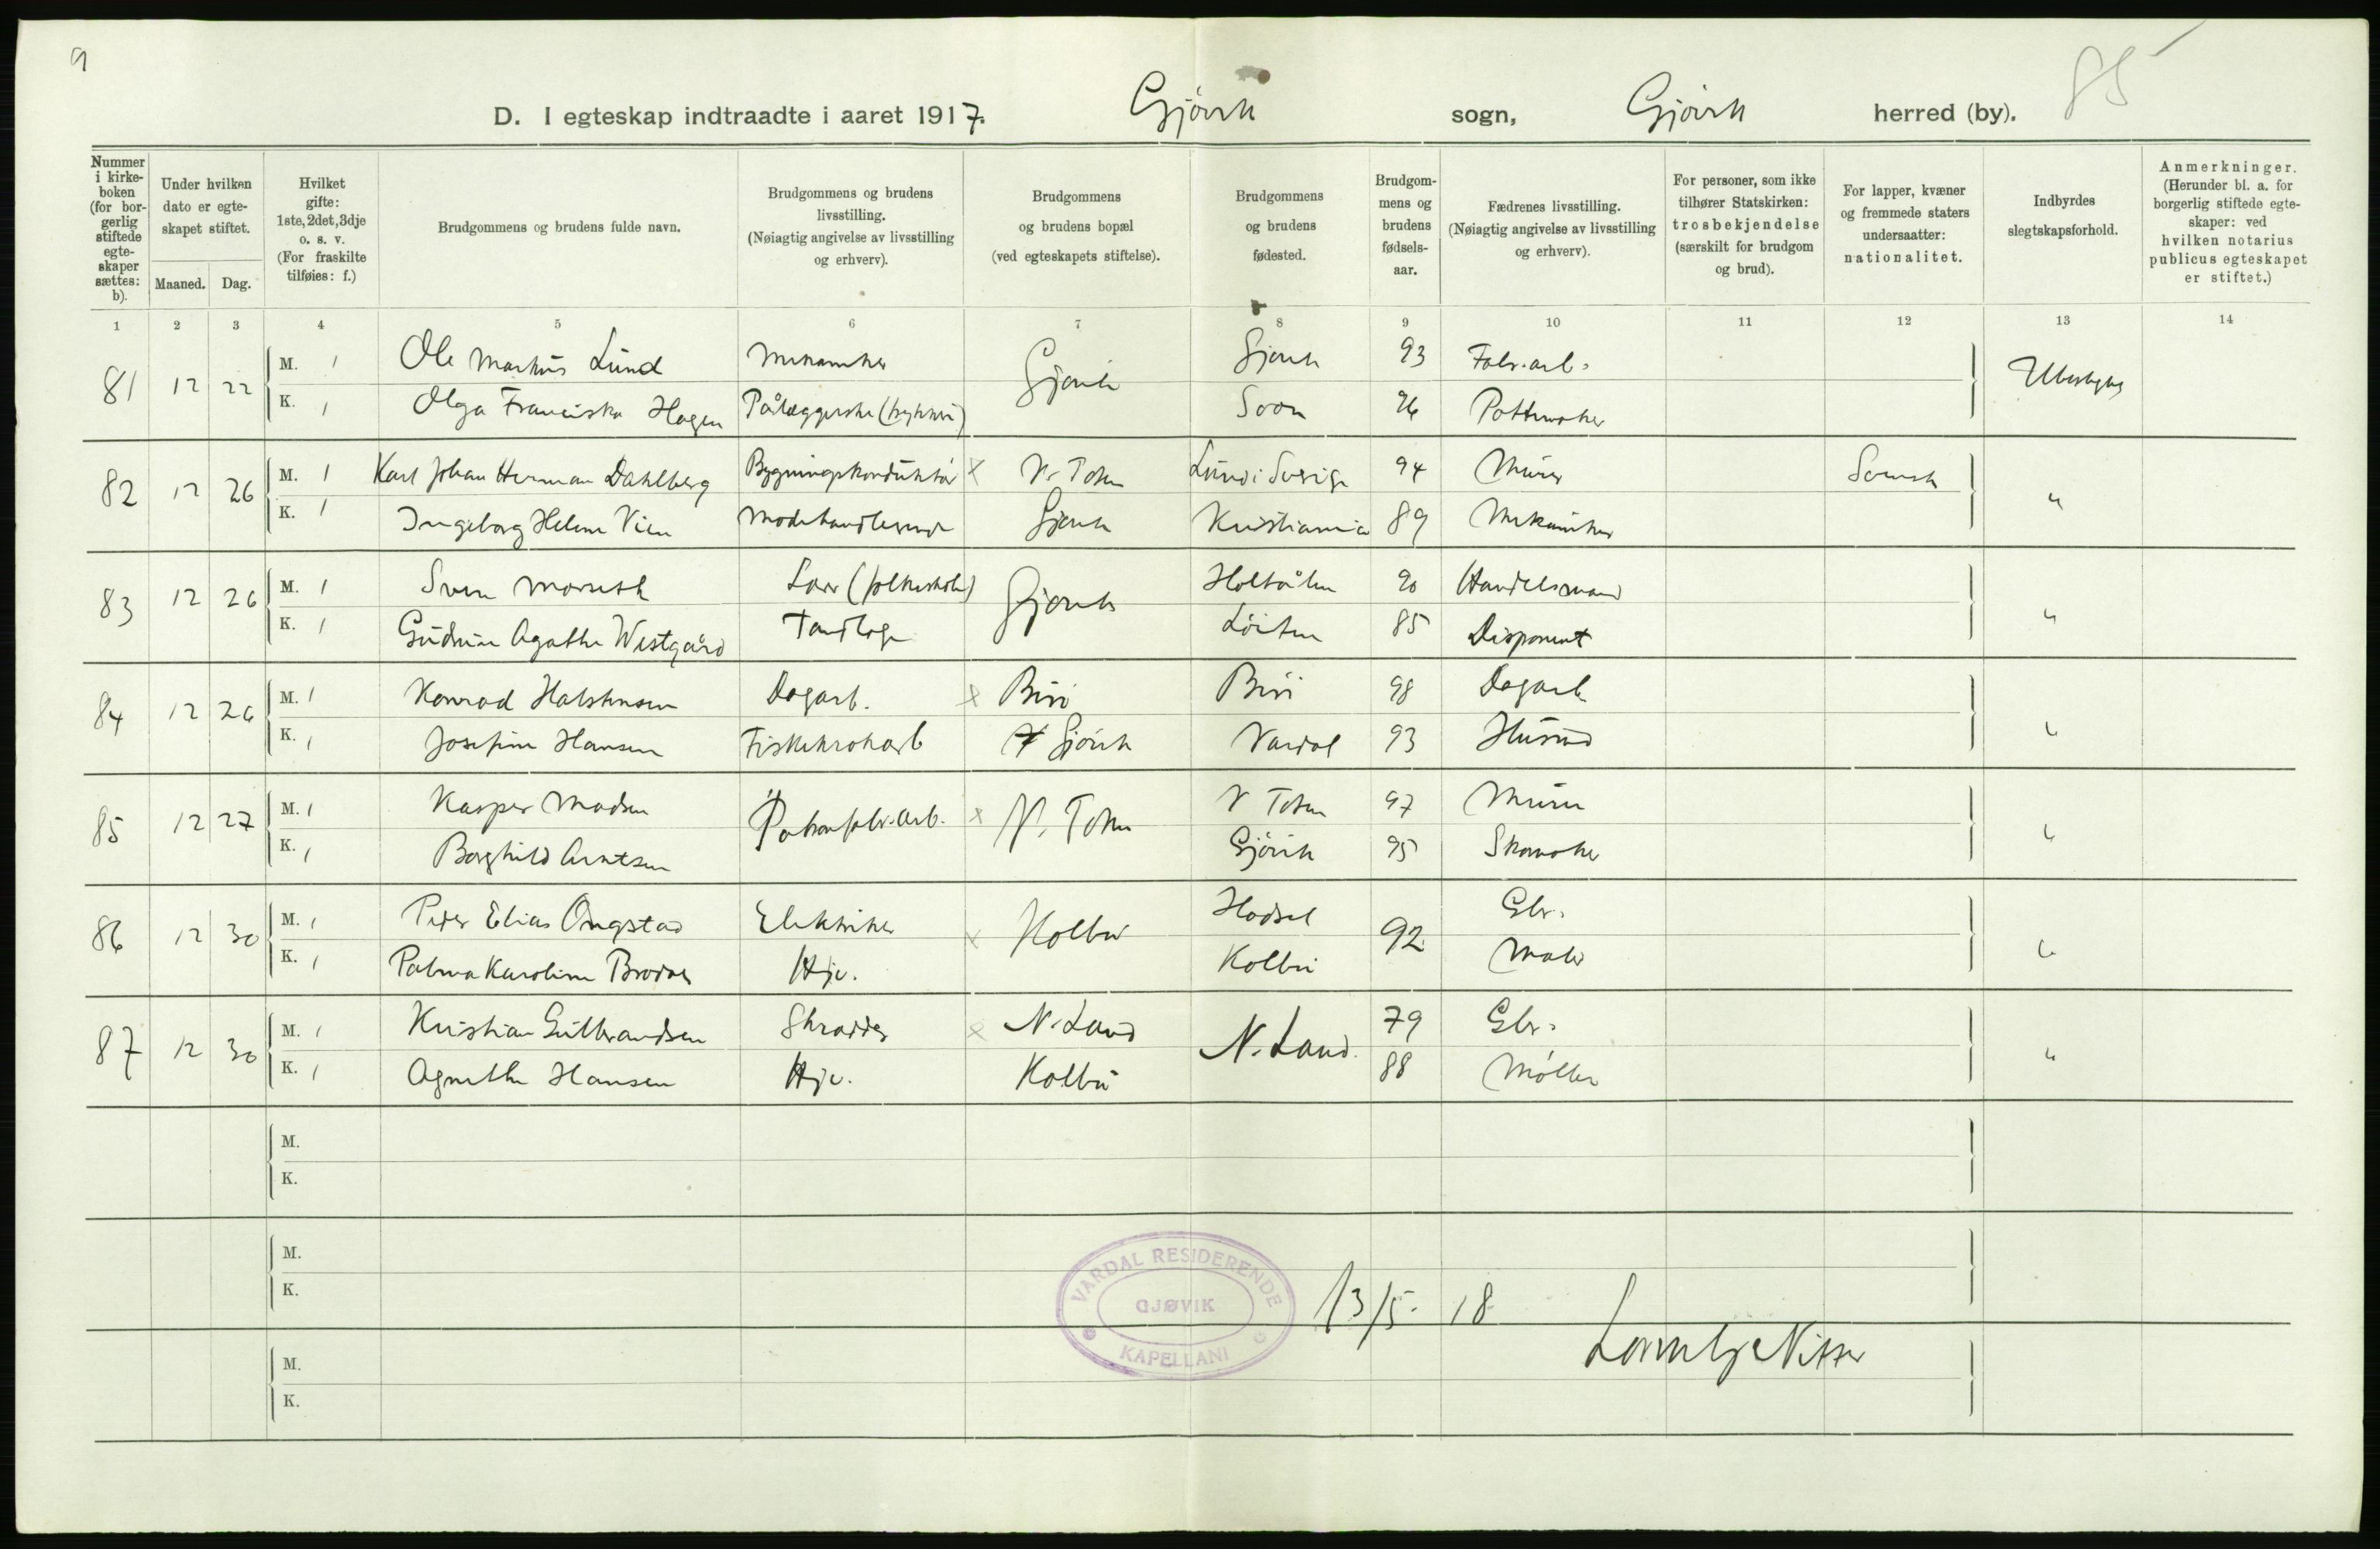 9
85
D. I egteskap indtraadte i aaret 1917. Gjövik sogn, Gjövik herred (by).
Nummer i kirkeboken (for borgerlig stiftede egteskaper sættes: b).
Under hvilken dato er egteskapet stiftet.
Maaned. Dag.
Hvilket gifte: 1ste, 2det, 3dje o. s. v. (For fraskilte tilføies: f.)
Brudgommens og brudens fulde navn.
Brudgommens og brudens livsstilling. (Nøiagtig angivelse av livsstilling og erhverv).
Brudgommens og brudens bopæl (ved egteskapets stiftelse).
Brudgommens og brudens fødested.
Brudgommens og brudens fødselsaar.
Fædrenes livsstilling. (Nøiagtig angivelse av livsstilling og erhverv).
For personer, som ikke tilhører Statskirken: trosbekjendelse (særskilt for brudgom og brud).
For lapper, kvæner og fremmede staters undersaatter: nationalitet.
Indbyrdes slegtskapsforhold.
Anmerkninger. (Herunder bl. a. for borgerlig stiftede egteskaper: ved hvilken notarius publicus egteskapet er stiftet.)
1 2 3 4 5 6 7 8 9 10 11 12 13 14
81 12 22 M. 1 Ole Markus Lund Mekaniker Gjövik Gjövik 93 Fabr. arb. Ubeslegtet
K. 1 Olga Franciska Hagen Pålæggerske (trykkeri) Soon 96 Pottemaker
82 12 26 M. 1 Karl Johan Herman Dahlberg Bygningskonduktör x V. Toten Lund i Sverige 94 Murer Svensk "
K. 1 Ingeborg Helene Vien Modehandlerinde Gjövik Kristiania 89 Mekaniker
83 12 26 M. 1 Svein Morseth Lærer (folkeskole) Gjövik Holtålen 90 Handelsmand "
K. 1 Gudrun Agathe Westgård Tandlæge Löiten 85 Disponent
84 12 26 M. 1 Konrad Halstensen Dagarb. x Biri Biri 98 Dagarb "
K. 1 Josefine Hansen Fiskekrokarb Gjövik Vardal 93 Husmd
85 12 27 M. 1 Kasper Madsen Patronfabr. arb. x V. Toten V Toten 97 Murer "
K. 1 Borghild Arntsen Gjövik 95 Skomaker
86 12 30 M. 1 Peder Elias Ongstad Elektriker x Kolbu Hadsel 92 Gbr. "
K. 1 Palma Karoline Brodal Hjv. Kolbu Maler
87 12 30 M. 1 Kristian Gulbrandsen Skrædder x N. Land N. Land. 79 Gbr. "
K. 1 Agnethe Hansen Hjv. Kolbu 88 Møller
M.
K.
M.
K.
VARDAL RESIDERENDE KAPELLANI
GJØVIK
13/5. 18
M.
K.